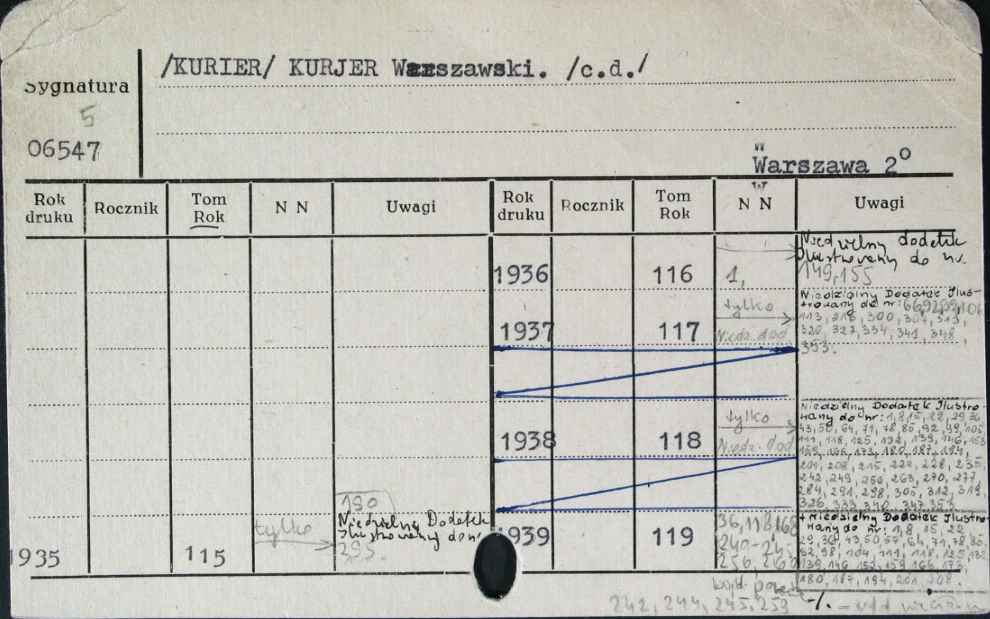 /KURIER/ KURJER Warszawski. /c.d./
Sygnatura
5
06547
Warszawa 2°
Rok druku Rocznik Tom Rok N N Uwagi Rok druku Rocznik Tom Rok N N Uwagi
1936 116 1, Niedzielny dodatek
Ilustrowany do nr.
149, 155
1937 117 tylko Niedz. dod Niedzielny Dodatek Ilus-
trowany do nr:
320, 327, 334, 341, 348,
393.
1938 118 tylko Niedz. dod Niedzielny Dodatek Ilustro-
wany do nr: 1, 8, 15, 22, 29, 36
43, 50, 64, 71, 78, 85, 92, 99, 105
111, 118, 125, 132, 139, 146, 153
159, 166, 173, 180, 187, 194,
201, 208, 215, 222, 228, 235,
242, 249, 256, 263, 270, 277,
284, 291, 298, 305, 312, 319,
326, 333, 340, 347, 354
1935 115 tylko 190
Niedzielny Dodatek
Ilustrowany do nr
295.
1939 119 36, 118, 168
240-245
256, 260
+ Niedzielny Dodatek Ilustro-
wany do nr: 1, 8, 15, 22
29, 36, 43, 50, 57, 64, 71, 78, 85,
92, 98, 104, 111, 118, 125, 132
139, 146, 152, 159, 166, 173,
180, 187, 194, 201, 208.
242, 244, 245, 253